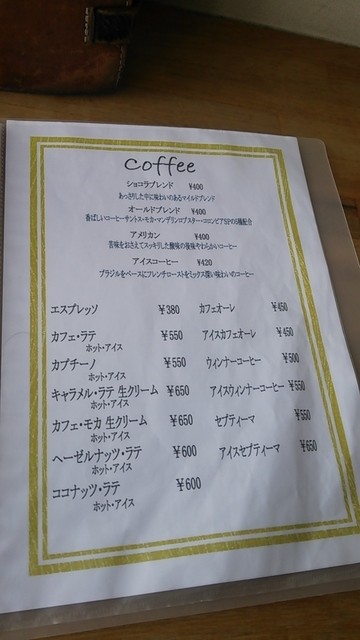 coffee
ショコラブレンド ¥400
あっさりした中に味わいのあるマイルドブレンド
オールドブレンド ¥400
香ばしいコーヒーサントス・モカ・マンデリンロブスター・コロンビアSPの5種配合
アメリカン ¥400
苦味をおさえてスッキリした酸味の後味やわらかいコーヒー
アイスコーヒー ¥420
ブラジルをベースにフレンチローストをミックス深い味わいのコーヒー
エスプレッソ ¥380 カフェオーレ ¥450
カフェ・ラテ ¥550 アイスカフェオーレ ¥450
ホット・アイス
カプチーノ ¥550 ウィンナーコーヒー ¥500
ホット・アイス
キャラメル・ラテ 生クリーム ¥650 アイスウィンナーコーヒー ¥550
ホット・アイス
カフェ・モカ 生クリーム ¥650 セブティーマ ¥550
ホット・アイス
ヘーゼルナッツ・ラテ ¥600 アイスセブティーマ ¥650
ホット・アイス
ココナッツ・ラテ ¥600
ホット・アイス